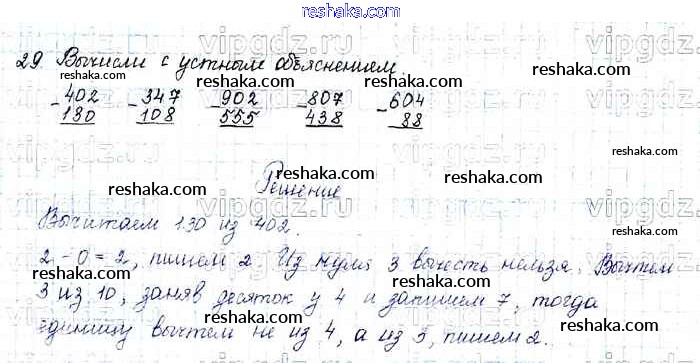 reshaka.com
29 Вычисли с устным объяснением.
-402 -347 -902 -807 -604
130 108 555 438 88
reshaka.com reshaka.com reshaka.com reshaka.com reshaka.com
vipgdz.ru
Решение
reshaka.com reshaka.com
Вычитаем 130 из 402.
reshaka.com reshaka.com
2-0=2, пишем 2. Из нуля 3 вычесть нельзя. Вычтем
3 из 10, заняв десяток у 4 и запишем 7, тогда
reshaka.com reshaka.com reshaka.com
единицу вычтем не из 4, а из 3, пишем 2.
reshaka.com